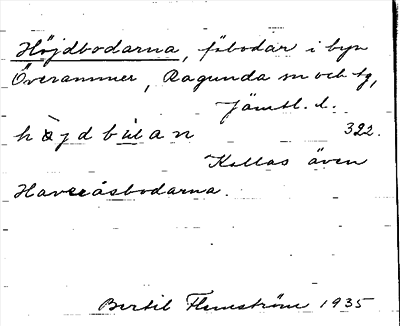 Höjdbodarna, fäbodar i byn
Överammer, Ragunda sn och tg,
Jämtl. l.
h öj d b ùl a n 322.
Kallas även
Haveråsbodarna.
Bertil Flemström 1935